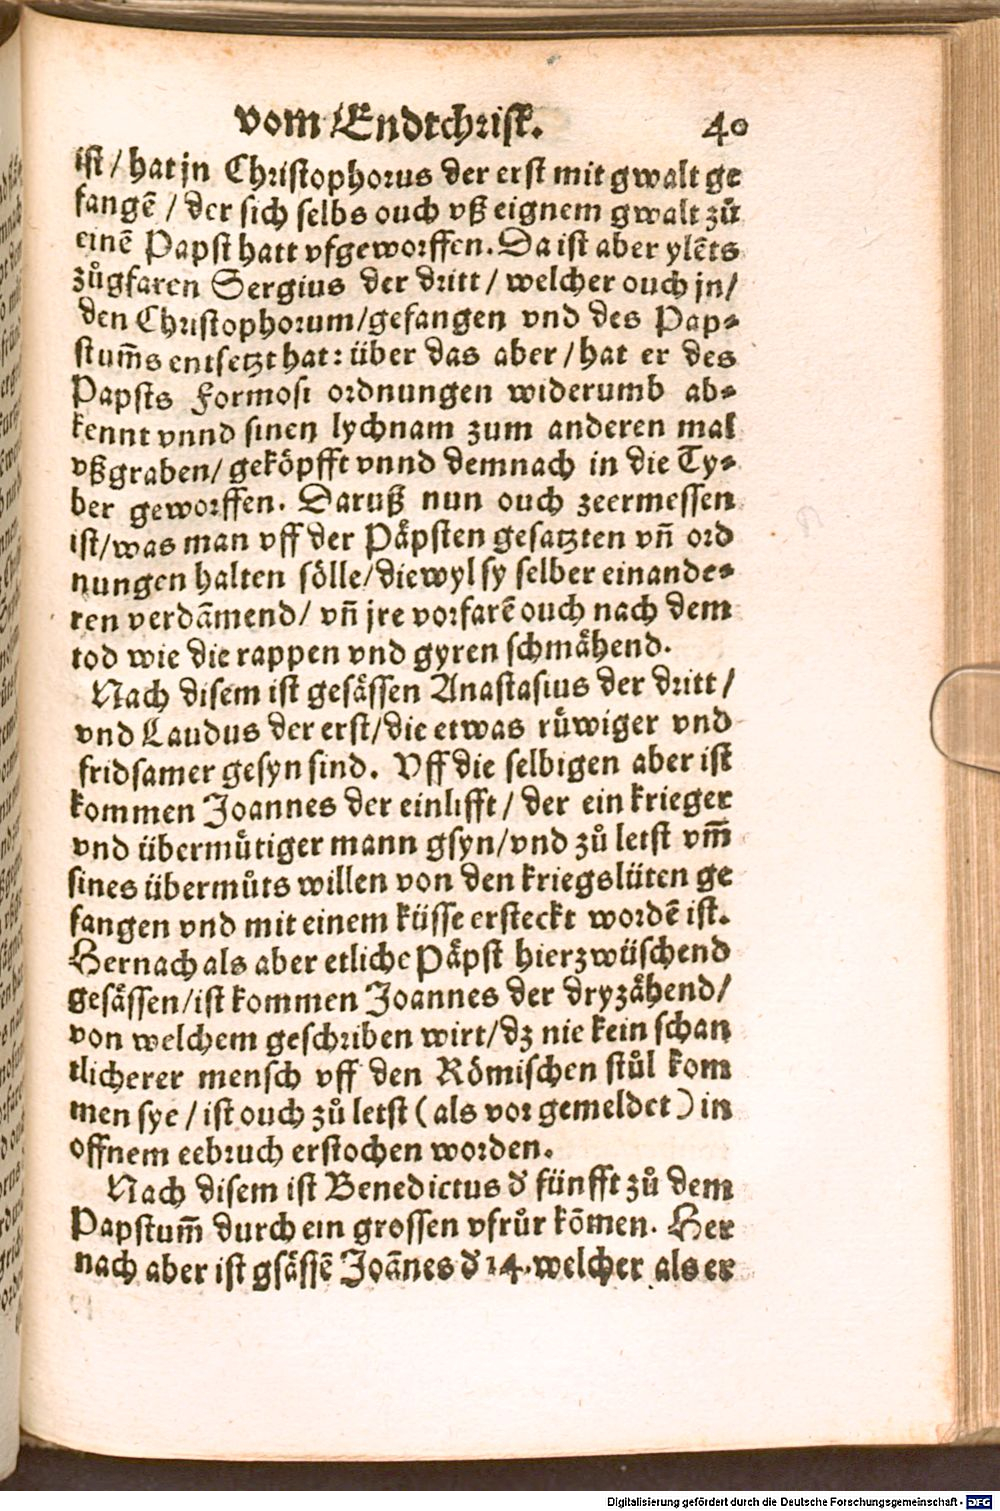 vom Endtchrist. 40
ist / hat jn Christophorus der erst mit gwalt ge
fangẽ / der sich selbs ouch vß eignem gwalt zů
einẽ Papst hatt vfgeworffen. Da ist aber ylẽts
zůgfaren Sergius der dritt / welcher ouch jn /
den Christophorum / gefangen vnd des Pap⸗
stum̃s entsetzt hat: über das aber / hat er des
Papsts Formosi ordnungen widerumb ab⸗
kennt vnnd sinen lychnam zum anderen mal
vßgraben / geköpfft vnnd demnach in die Ty⸗
ber geworffen. Daruß nun ouch zeermessen
ist / was man vff der Päpsten gesatzten vñ ord
nungen halten sölle / diewyl sy selber einande⸗
ren verdãmend / vñ jre vorfarẽ ouch nach dem
tod wie die rappen vnd gyren schmähend.
Nach disem ist gesässen Anastasius der dritt /
vnd Laudus der erst / die etwas rüwiger vnd
fridsamer gesyn sind. Vff die selbigen aber ist
kommen Joannes der einlifft / der ein krieger
vnd übermütiger mann gsyn / vnd zů letst vm̃
sines übermůts willen von den kriegslüten ge
fangen vnd mit einem küsse ersteckt wordẽ ist.
Hernach als aber etliche Päpst hierzwüschend
gesässen / ist kommen Joannes der dryzähend /
von welchem geschriben wirt / dz nie kein schan
tlicherer mensch vff den Römischen stůl kom
men sye / ist ouch zů letst ( als vor gemeldet ) in
offnem eebruch erstochen worden.
Nach disem ist Benedictus d' fünfft zů dem
Papstum̃ durch ein grossen vfrůr kõmen. Her
nach aber ist gsässẽ Joãnes d' 14. welcher als er
Digitalisierung gefördert durch die Deutsche Forschungsgemeinschaft - DFG